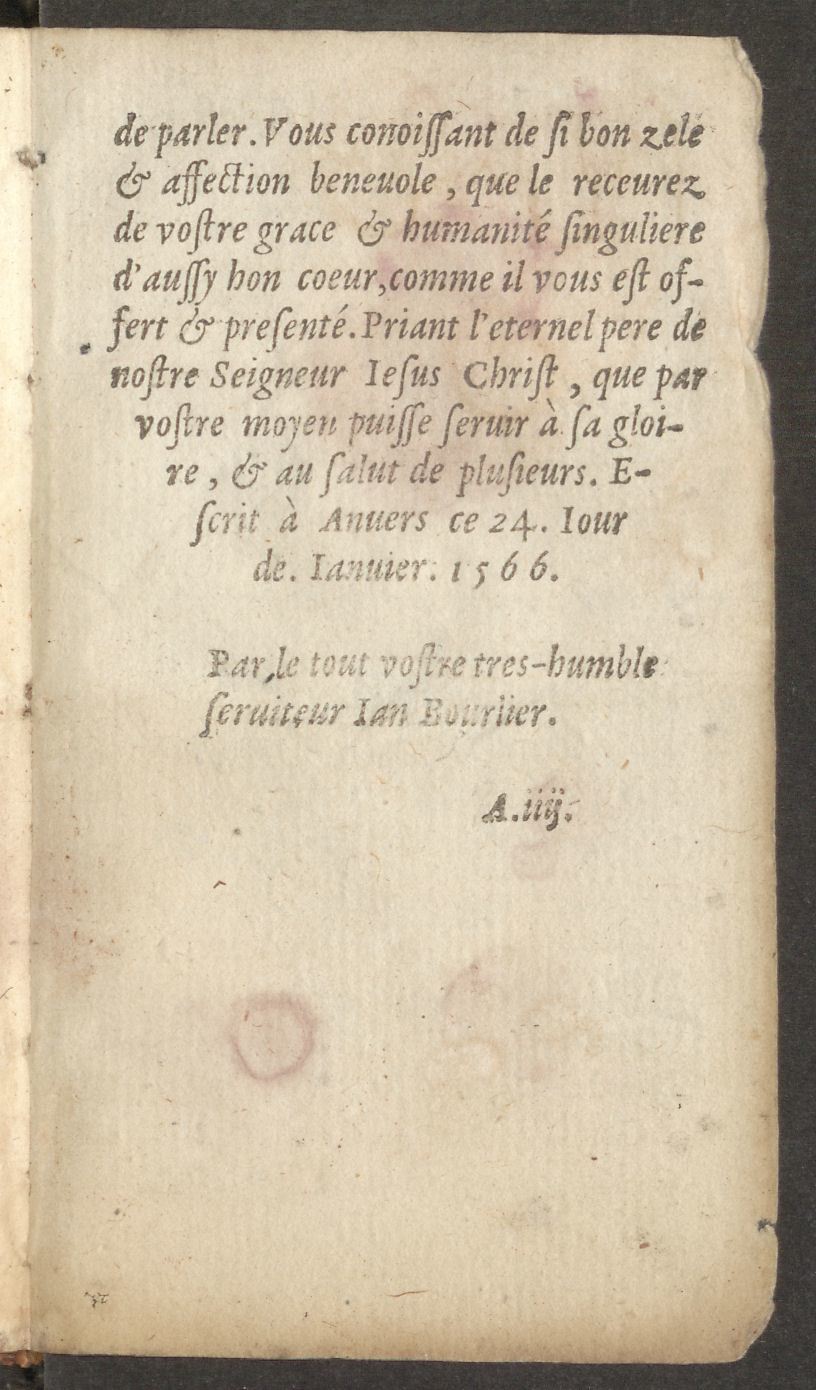 de parler. Vous conoiſſant de ſi bon zele
& affection beneuole , que le receurez
de voſtre grace & humanité ſinguliere
d'auſſy bon coeur, comme il vous eſt of-
fert & preſenté. Priant l'eternel pere de
noſtre Seigneur Ieſus Chriſt , que par
voſtre moyen puiſſe ſeruir à ſa gloi-
re , & au ſalut de pluſieurs. E-
ſcrit à Anuers ce 24. Iour
de. Ianuier. 1566.
Par, le tout voſtre tres-humble
ſeruiteur Ian
A.iiij.